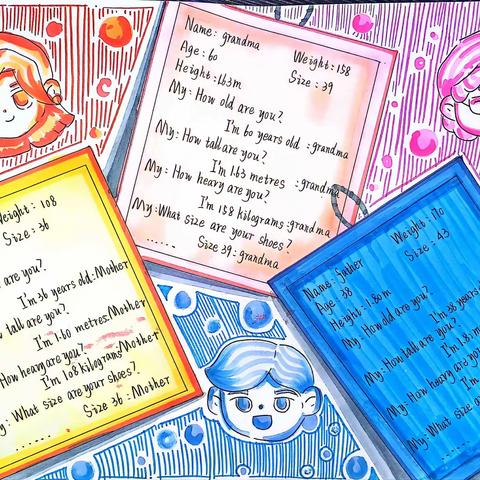 Name: grandma
Age: 60 Weight: 158
Height: 1.63m Size: 39
My: How old are you?
I'm 60 years old :grandma
My: How tall are you?
I'm 1.63 metres :grandma
My: How heavy are you?
I'm 158 kilograms :grandma
My: What size are your shoes?
Size 39: grandma
......
Weight: 108
Size: 36
are you?
I'm 36 years old: Mother
tall are you?
I'm 1.60 metres: Mother
How heavy are you?
I'm 108 kilograms: Mother
What size are your shoes?
Size 36: Mother
......
Name: father
Age: 38 Weight: 170
Height: 1.80m Size: 43
My: How old are you?
I'm 38 years
My: How tall are you?
I'm 1.8
My: How heavy are
I'm
My: What size
......